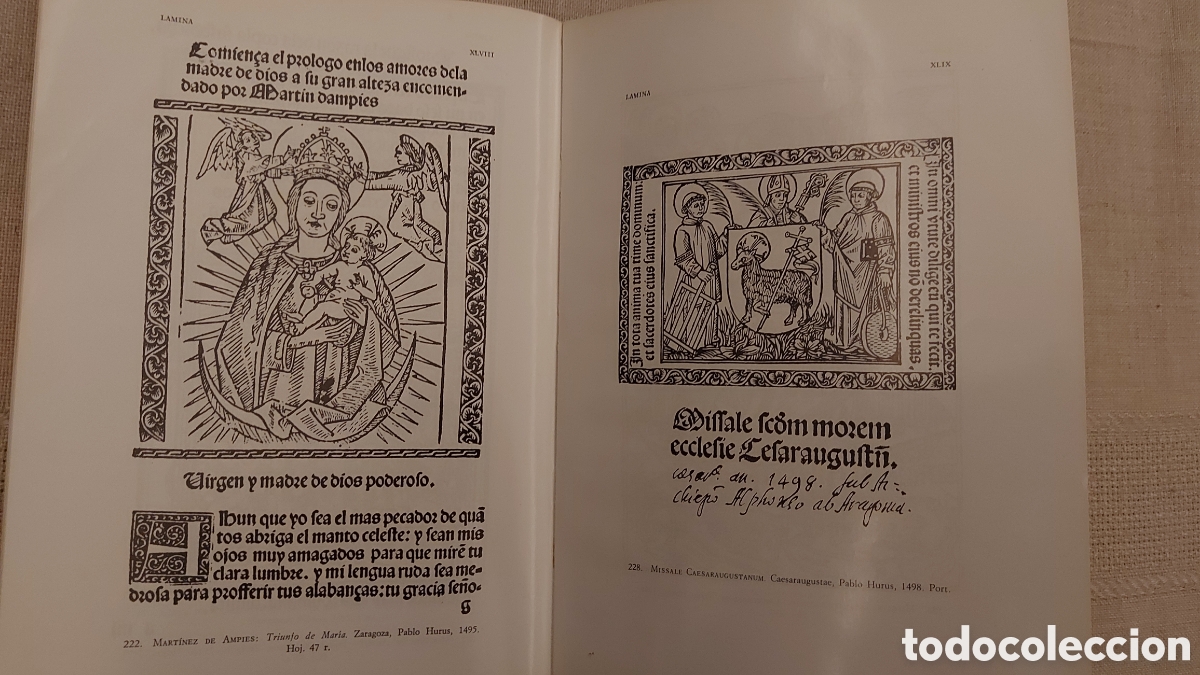 LAMINA
XLVIII
Comiença el prologo enlos amores dela
madre de dios a su gran alteza encomen-
dado por Martin dampies
Uirgen y madre de dios poderoso.
Ahun que yo sea el mas pecador de quā
tos abriga el manto celeste: y sean mis
ojos muy amagados para que mirē tu
clara lumbre. y mi lengua ruda sea me-
drosa para profferir tus alabanças: tu gracia seño-
g
222. MARTÍNEZ DE AMPIES: Triunfo de María. Zaragoza, Pablo Hurus, 1495.
Hoj. 47 r.
XLIX
LAMINA
In tota anima tua time dominum:
et sacerdotes eius sanctifica.
In omni virtute dilige eū qui te fecit.
et ministros eius nō derelinquas.
Missale scdm morem
ecclesie Cesaraugustn̄.
an. 1498. sub Ar-
chiepo Alphonso ab Aragonia.
228. MISSALE CAESARAUGUSTANUM. Caesaraugustae, Pablo Hurus, 1498. Port.
todocoleccion